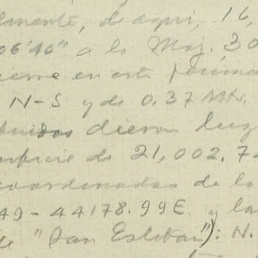 lmente, de aquí, 16,
06'46" a la Maj. 30
ierre en este
N-S y de 0.37 MN.
dieron luz
rficie de 21,002.7
coordenadas de lo
49-44178.99E y la
de "San Esteban"): N.